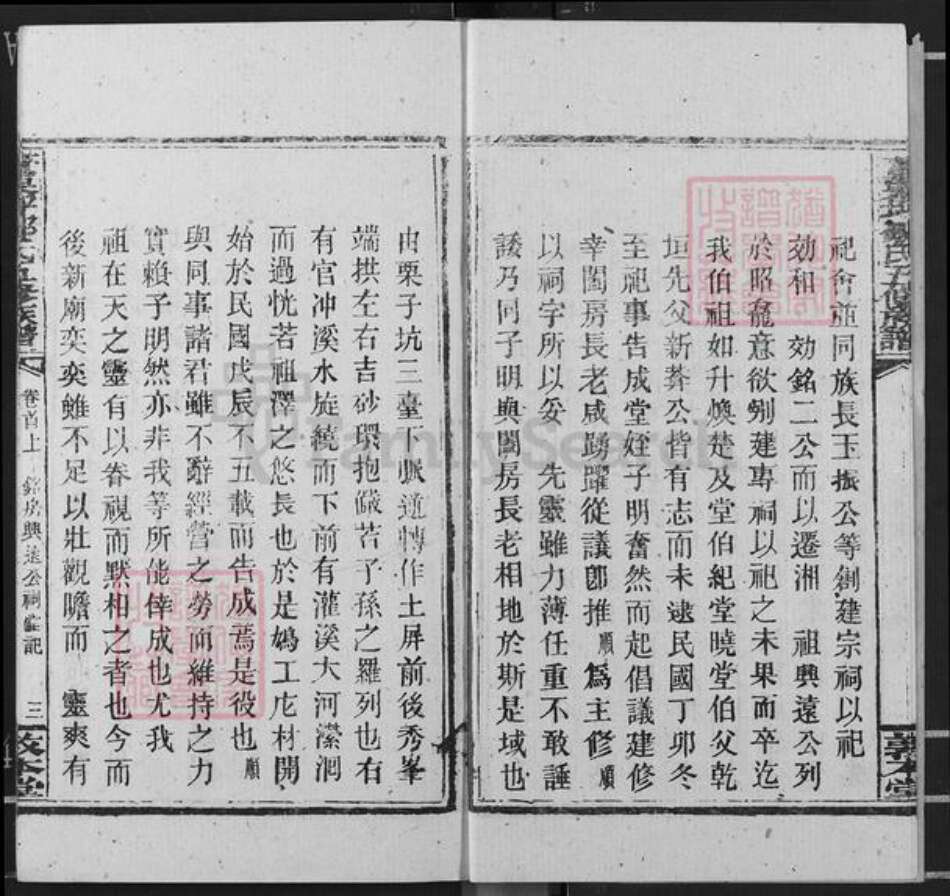 祀會並同族長玉振公等創建宗祠以祀
効和　効銘二公而以遷湘　祖興遠公列
於昭龕意欲剏建專祠以祀之未果而卒迄
我伯祖如升煥楚及堂伯紀堂曉堂伯父乾
垣先父新莽公皆有志而未逮民國丁卯冬
至祀事告成堂姪子明奮然而起倡議建修
幸閤房長老咸踴躍從議卽推順為主修順
以祠宇所以妥　先靈雖力薄任重不敢諉
諉乃同子明與闔房長老相地於斯是域也
由栗子坑三臺下脈逆轉作土屏前後秀峯
端拱左右吉砂環抱儼若子孫之羅列也右
有官冲溪水旋繞而下前有灌溪大河瀠洄
而過恍若祖澤之悠長也於是鳩工庀材開
始於民國戊辰不五載而告成焉是役也順
與同事諸君雖不辭經營之勞而維持之力
實賴子明然亦非我等所能倖成也尤我
祖在天之靈有以眷視而默相之者也今而
後新廟奕奕雖不足以壯觀瞻而　靈爽有
卷首上　銘房興遠公祠堂記　三
敦本堂
FamilySearch